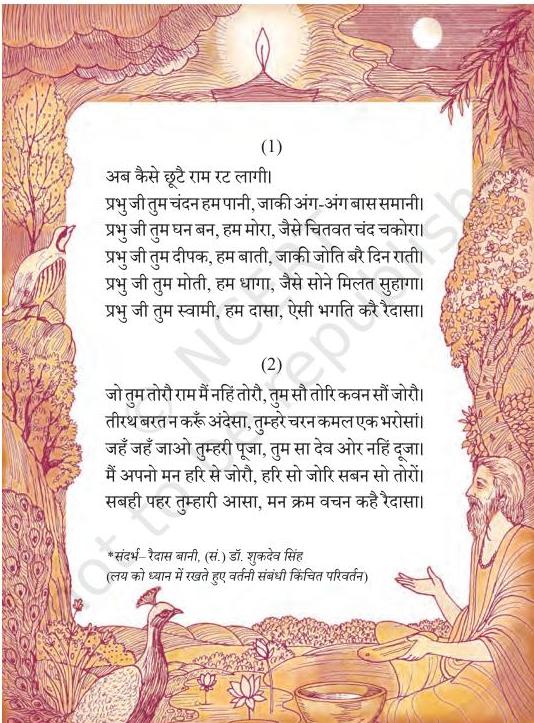 (1)
अब कैसे छूटै राम रट लागी।
प्रभु जी तुम चंदन हम पानी, जाकी अंग-अंग बास समानी।
प्रभु जी तुम घन बन, हम मोरा, जैसे चितवत चंद चकोरा।
प्रभु जी तुम दीपक, हम बाती, जाकी जोति बरै दिन राती।
प्रभु जी तुम मोती, हम धागा, जैसे सोने मिलत सुहागा।
प्रभु जी तुम स्वामी, हम दासा, ऐसी भगति करै रैदासा।
(2)
जो तुम तोरौ राम मैं नहिं तोरौ, तुम सौ तोरि कवन सौं जोरौ।
तीरथ बरत न करूँ अंदेसा, तुम्हरे चरन कमल एक भरोसां।
जहँ जहँ जाओ तुम्हरी पूजा, तुम सा देव ओर नहिं दूजा।
मैं अपनो मन हरि से जोरौ, हरि सो जोरि सबन सो तोरों।
सबही पहर तुम्हारी आसा, मन क्रम वचन कहै रैदासा।
*संदर्भ– रैदास बानी, (सं.) डॉ. शुकदेव सिंह
(लय को ध्यान में रखते हुए वर्तनी संबंधी किंचित परिवर्तन)
© NCERT
not to be republished